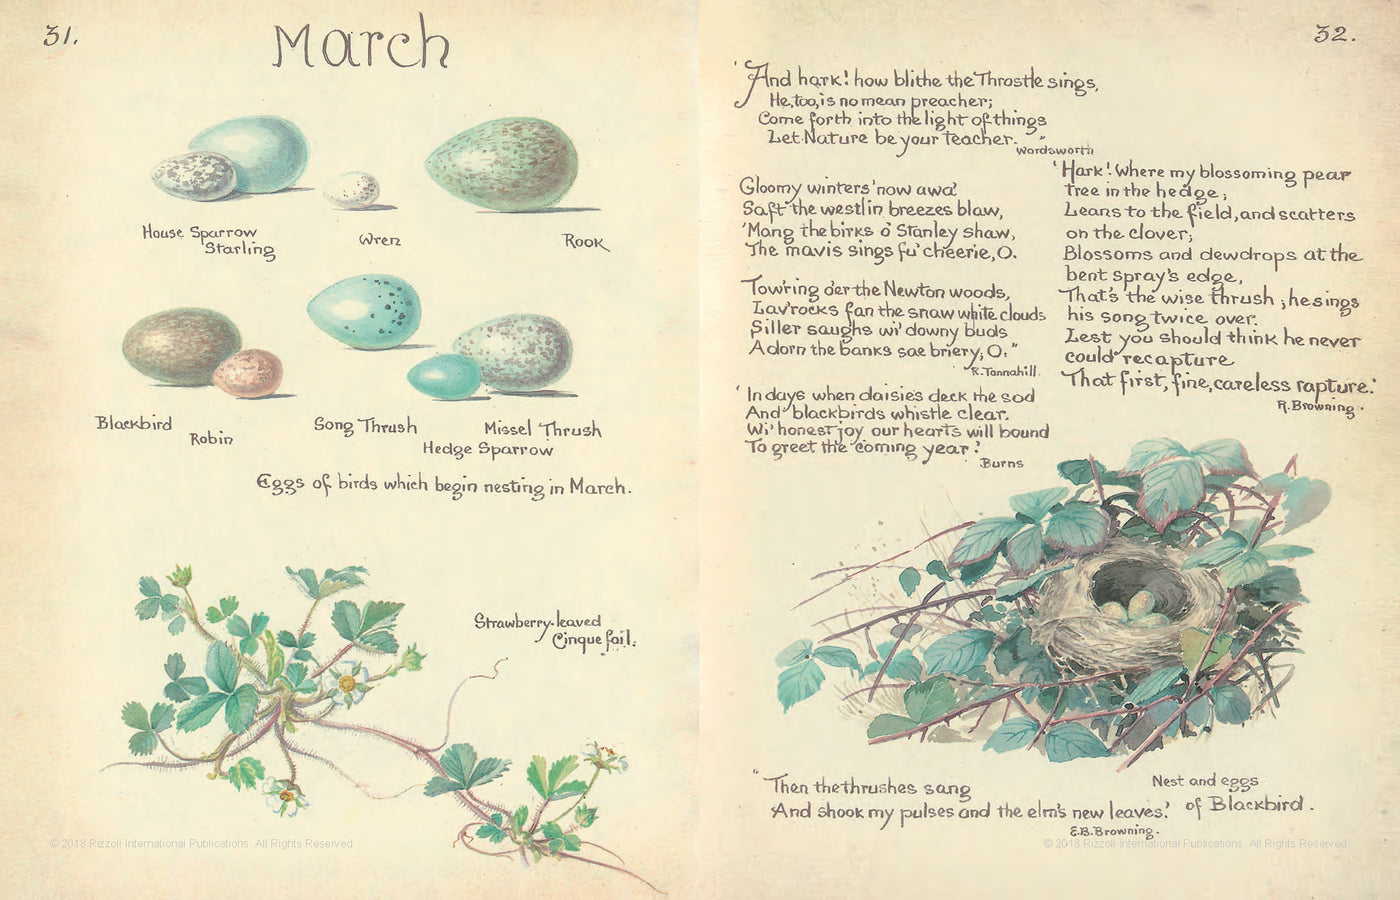 31.
March
House Sparrow
Starling
Wren
Rook
Blackbird
Robin
Song Thrush
Missel Thrush
Hedge Sparrow
Eggs of birds which begin nesting in March.
Strawberry-leaved
Cinquefoil.
© 2018 Rizzoli International Publications. All Rights Reserved.
32.
'And hark! how blithe the Throstle sings,
He, too, is no mean preacher;
Come forth into the light of things
Let Nature be your teacher."
Wordsworth
Gloomy winters' now awa'
Saft the westlin breezes blaw,
'Mang the birks o' Stanley shaw,
The mavis sings fu' cheerie, O.
Tow'ring o'er the Newton woods,
Lav'rocks fan the snaw white clouds
Siller saughs wi' downy buds
Adorn the banks sae briery, O."
R. Tannahill.
'In days when daisies deck the sod
And blackbirds whistle clear.
Wi' honest joy our hearts will bound
To greet the coming year!'
Burns
'Hark! where my blossoming pear
tree in the hedge;
Leans to the field, and scatters
on the clover;
Blossoms and dewdrops at the
bent spray's edge,
That's the wise thrush; he sings
his song twice over.
Lest you should think he never
could recapture
That first, fine, careless rapture.'
R. Browning.
"Then the thrushes sang
And shook my pulses and the elm's new leaves.'
E.B. Browning.
Nest and eggs
of Blackbird.
© 2018 Rizzoli International Publications. All Rights Reserved.